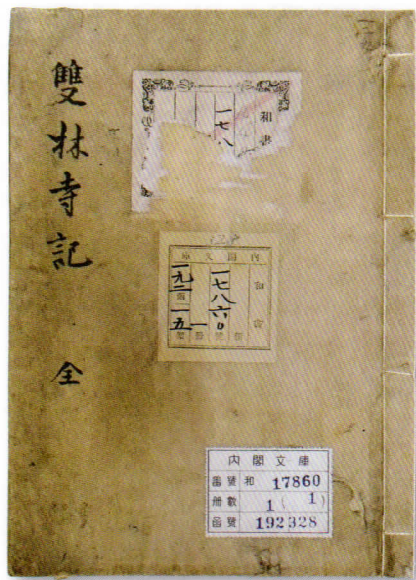 雙林寺記 全
和書
一七八
庫文閣内
和書
一七八六〇
一
一九二
一五
内閣文庫
番號 和 17860
冊數 1 (1)
函號 192 328